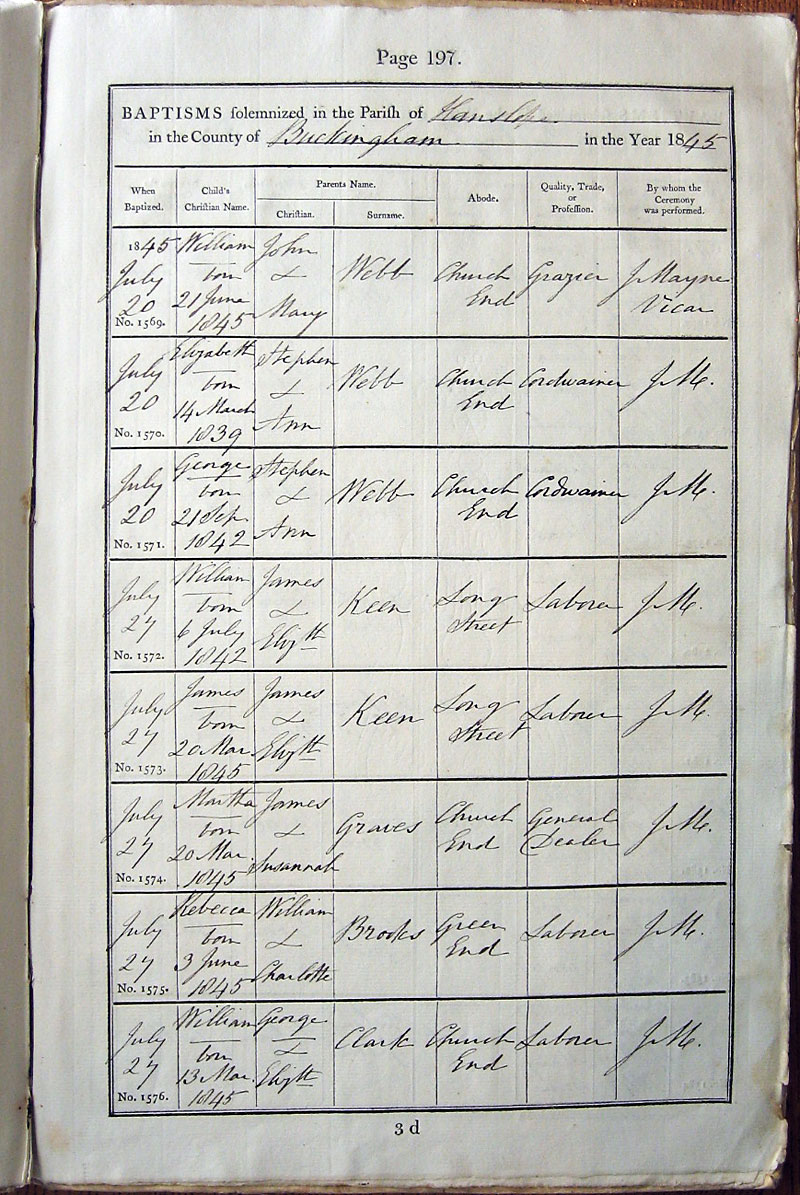 Page 197.
BAPTISMS solemnized in the Parish of Hanslope
in the County of Buckingham in the Year 1845
When Baptized. Child's Christian Name. Parents Name. Christian. Surname. Abode. Quality, Trade, or Profession. By whom the Ceremony was performed.
1845 July 20 No. 1569. William born 21 June 1845 John & Mary Webb Church End Grazier J. Mayne Vicar
July 20 No. 1570. Elizabeth born 14 March 1839 Stephen & Ann Webb Church End Cordwainer J. M.
July 20 No. 1571. George born 21 Sep. 1842 Stephen & Ann Webb Church End Cordwainer J. M.
July 27 No. 1572. William born 6 July 1842 James & Elizth Keen Long Street Laborer J. M.
July 27 No. 1573. James born 20 Mar. 1845 James & Elizth Keen Long Street Laborer J. M.
July 27 No. 1574. Martha born 20 Mar. 1845 James & Susannah Graves Church End General Dealer J. M.
July 27 No. 1575. Rebecca born 3 June 1845 William & Charlotte Brooks Green End Laborer J. M.
July 27 No. 1576. William born 13 Mar. 1845 George & Elizth Clark Church End Laborer J. M.
3 d